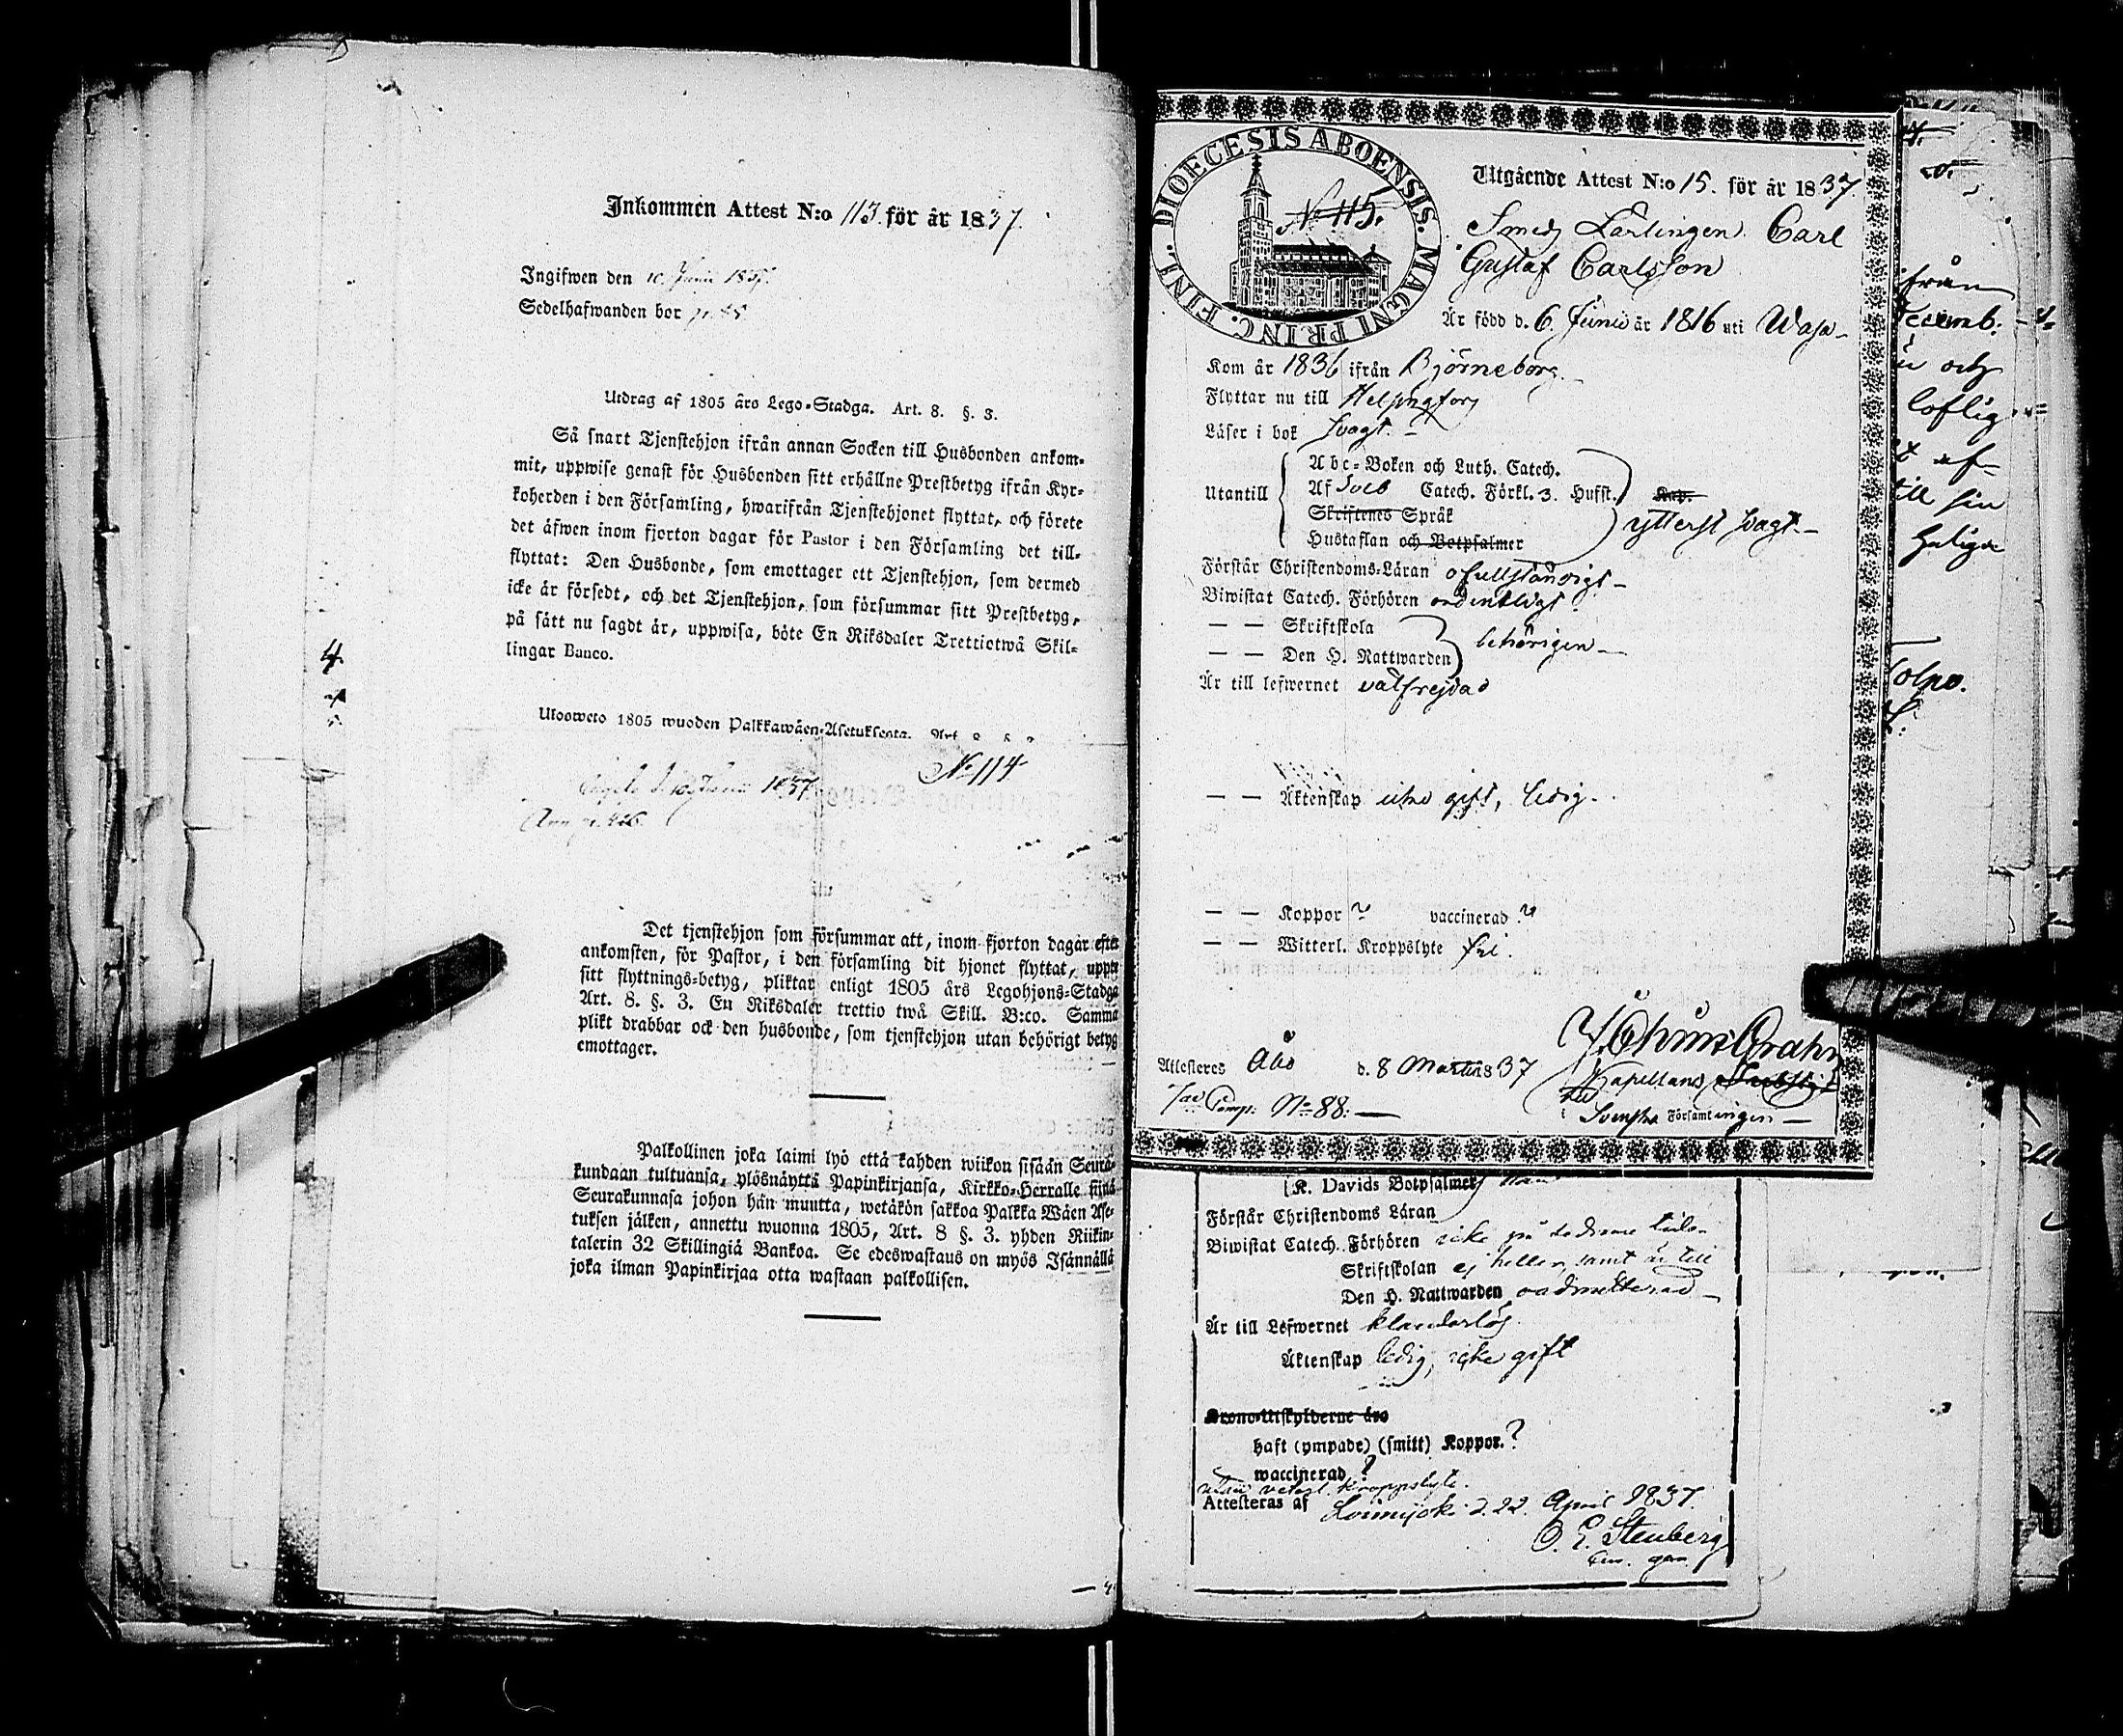 Inkommen Attest N:o 113. för år 1837.
Ingifwen den 10. Junii 1837.
Sedelhafwanden bor
Utdrag af 1805 års Lego-Stadga. Art. 8. §. 3.
Så snart Tjenstehjon ifrån annan Socken till Husbonden ankom-
mit, uppwise genast för Husbonden sitt erhållne Prestbetyg ifrån Kyr-
koherden i den Församling, hwarifrån Tjenstehjonet flyttat, och förete
det äfwen inom fjorton dagar för Pastor i den Församling det till-
flyttat: Den Husbonde, som emottager ett Tjenstehjon, som dermed
icke är försedt, och det Tjenstehjon, som försummar sitt Prestbetyg,
på sätt nu sagdt är, uppwisa, böte En Riksdaler Trettiotwå Skil-
lingar Banco.
4.
Ulosweto 1805 wuoden Palkkawäen-Asetuksesta. Art
No 114
Junii 1837
Det tjenstehjon som försummar att, inom fjorton dagar efter
ankomsten, för Pastor, i den församling dit hjonet flyttat, uppte
sitt flyttnings-betyg, pliktar enligt 1805 års Legohjons-Stadga
Art. 8. §. 3. En Riksdaler trettio twå Skill. B:co. Samma
plikt drabbar ock den husbonde, som tjenstehjon utan behörigt betyg
emottager.
Palkollinen joka laimi lyö että kahden wiikon sisään Seura-
kundaan tultuansa, ylösnäyttä Papinkirjansa, Kirkko-Herralle siinä
Seurakunnasa johon hän muutta, wetäkön sakkoa Palkka Wäen Ase-
tuksen jälken, annettu wuonna 1805, Art. 8 §. 3. yhden Riikin-
talerin 32 Skillingiä Bankoa. Se edeswastaus on myös Isännällä
joka ilman Papinkirjaa otta wastaan palkollisen.
DIOECESIS ABOENSIS. MAGNI PRINC. FINL.
No 115.
Utgående Attest N:o 15. för år 1837.
Smeds Lärlingen Carl
Gustaf Carlsson
Är född d. 6. Junii år 1816 uti Wasa
Kom år 1836 ifrån Björneborg.
Flyttar nu till Helsingfors
Läser i bok svagt.
Utantill
Abc-Boken och Luth. Catech.
Af Sveb Catech. Förkl. 3. Hufst.
Skriftenes Språk
Hustaflan och Botpsalmer
ytterst svagt.
Förstår Christendoms-Läran ofullständigt
Biwistat Catech. Förhören ordentligt
— — Skriftskola
— — Den H. Nattwarden
behörigen
Är till lefwernet välfrejdad
— — Äktenskap icke gift, ledig.
— — Koppor ? vaccinerad ?
— — Witterl. Kroppslyte fri.
Attesteras Åbo d. 8 Martii 1837
Comp: No 88:
Kapellans
Svenska Församlingen
K. Davids Botpsalmer
Förstår Christendoms Läran
Biwistat Catech. Förhören icke på sednare tider
Skriftskolan ej heller, samt är till
Den H. Nattwarden oadmitterad
Är till Lefwernet klanderlös.
Äktenskap ledig, icke gift
Krono-Utskylderne äro
haft (ympade) (smitt) Koppor. ?
waccinerad ?
utan kroppslyte.
Attesteras af Loimijoki d. 22. April 1837.
O. E. Stenberg
ifrån
Decemb:
och
loflig
af
till sin
heliga